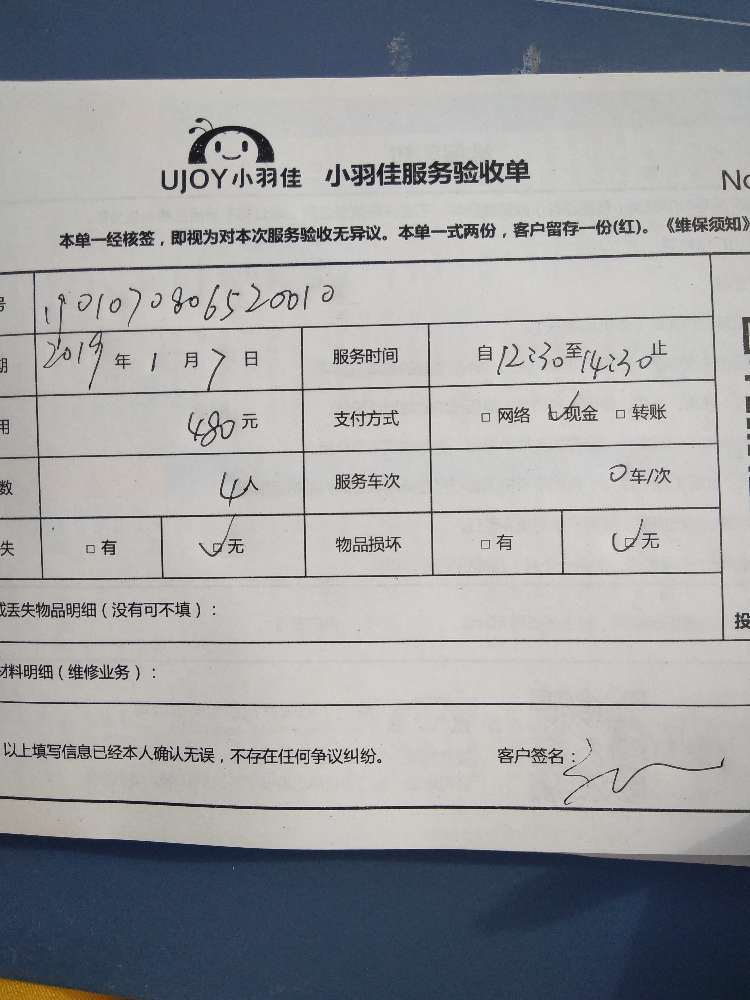 UJOY小羽佳 小羽佳服务验收单 No
本单一经核签，即视为对本次服务验收无异议。本单一式两份，客户留存一份(红)。《维保须知》
号 1901070806520010
期 2019 年 1 月 7 日 服务时间 自 12:30 至 14:30 止
用 480 元 支付方式 □ 网络 ☑ 现金 □ 转账
数 4人 服务车次 0 车/次
失 □ 有 ☑ 无 物品损坏 □ 有 ☑ 无
或丢失物品明细（没有可不填）： 投
材料明细（维修业务）：
以上填写信息已经本人确认无误，不存在任何争议纠纷。 客户签名：